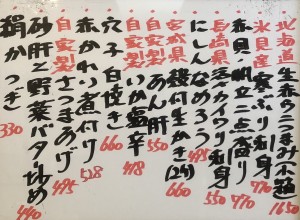 北海道 生赤ウニつまみ(小箱) 1650
氷見産 寒ぶり刺身 770
赤貝・帆立二点盛り 770
長崎県 活カイワリ刺身 550
にしんなめろう 495
宮城県 殻付生かき(2ケ) 660
自家製 あん肝 550
自家製 いか塩辛 418
穴子白焼き 660
赤かれい煮付け 528
自家製 さつまあげ 495
砂肝と野菜バター炒め 440
絹かつぎ 330